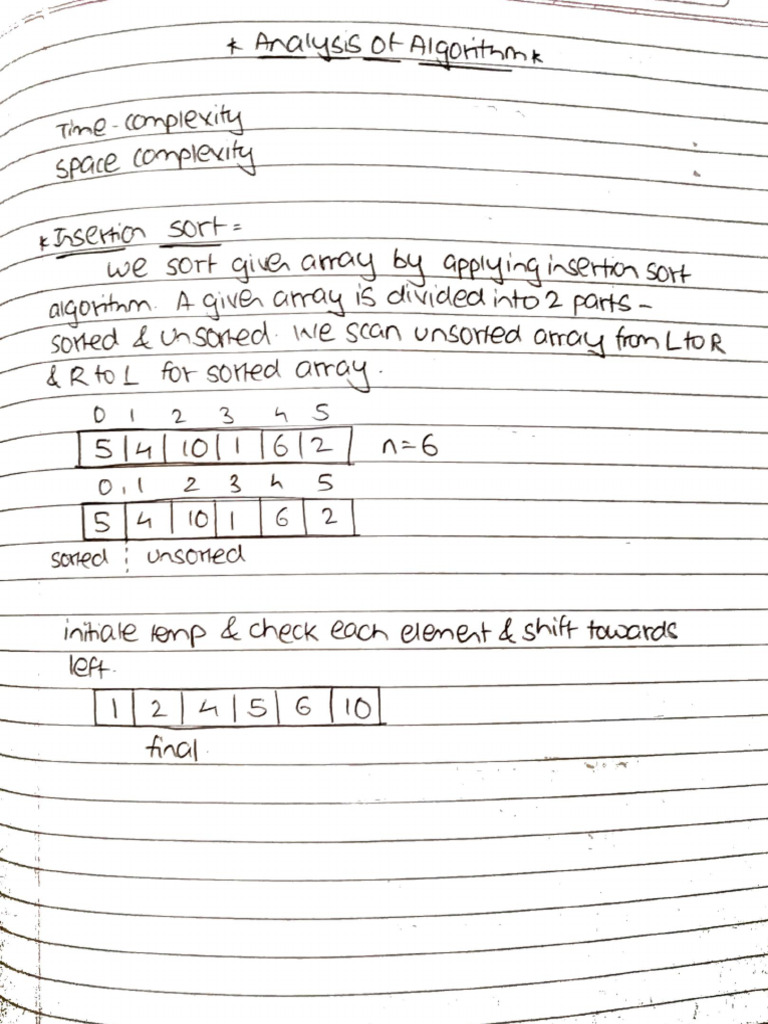 * Analysis Of Algorithm *
Time-complexity
Space complexity
* Insertion sort =
We sort given array by applying insertion sort
algorithm. A given array is divided into 2 parts -
sorted & unsorted. We scan unsorted array from L to R
& R to L for sorted array.
0 1 2 3 4 5
5 4 10 1 6 2 n=6
0 1 2 3 4 5
5 4 10 1 6 2
sorted unsorted
initiale temp & check each element & shift towards
left.
1 2 4 5 6 10
final